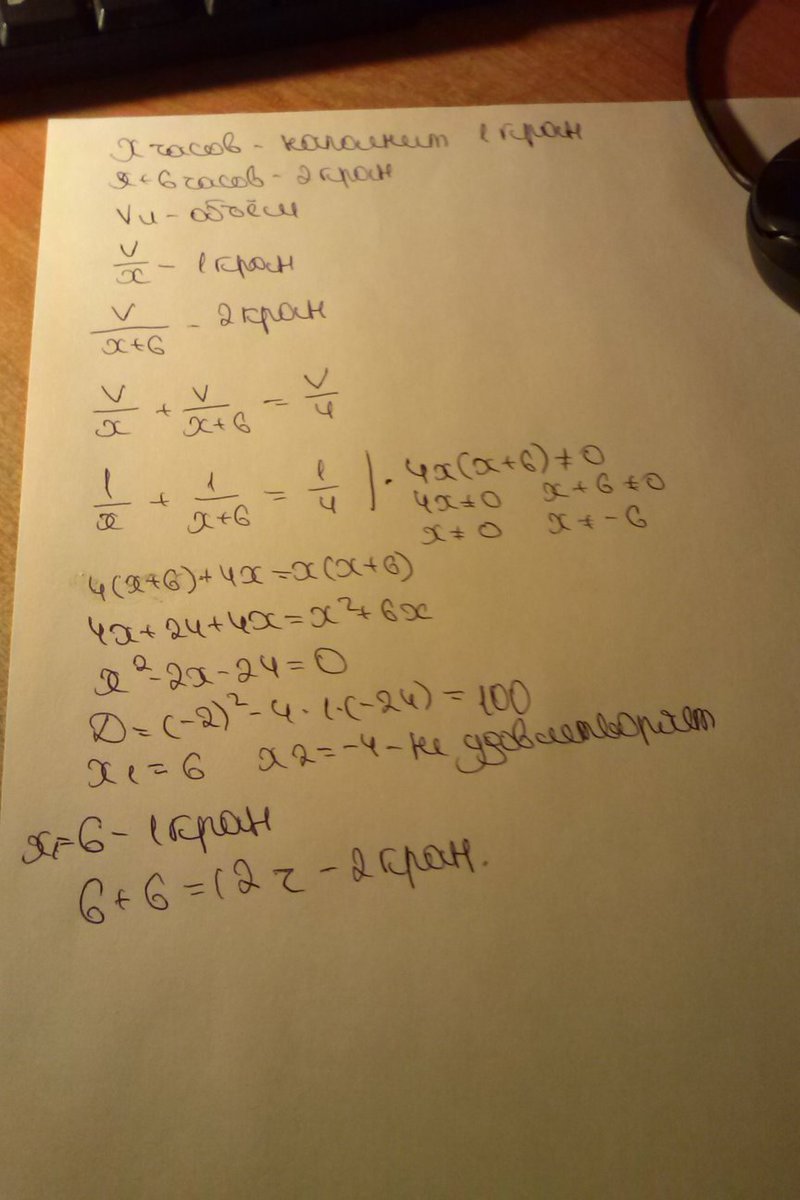 x часов - наполнит 1 кран
x+6 часов - 2 кран
V л - объём
V/x - 1 кран
V/(x+6) - 2 кран
V/x + V/(x+6) = V/4
1/x + 1/(x+6) = 1/4 | · 4x(x+6) ≠ 0
4x ≠ 0 x + 6 ≠ 0
x ≠ 0 x ≠ - 6
4(x+6)+4x=x(x+6)
4x+24+4x=x²+6x
x²-2x-24=0
D=(-2)²-4·1·(-24)=100
x1=6 x2=-4-не удовлетворяет
x1=6-1 кран
6+6=12 ч - 2 кран.